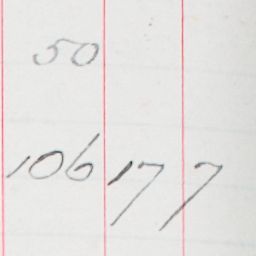 50
106 17 7